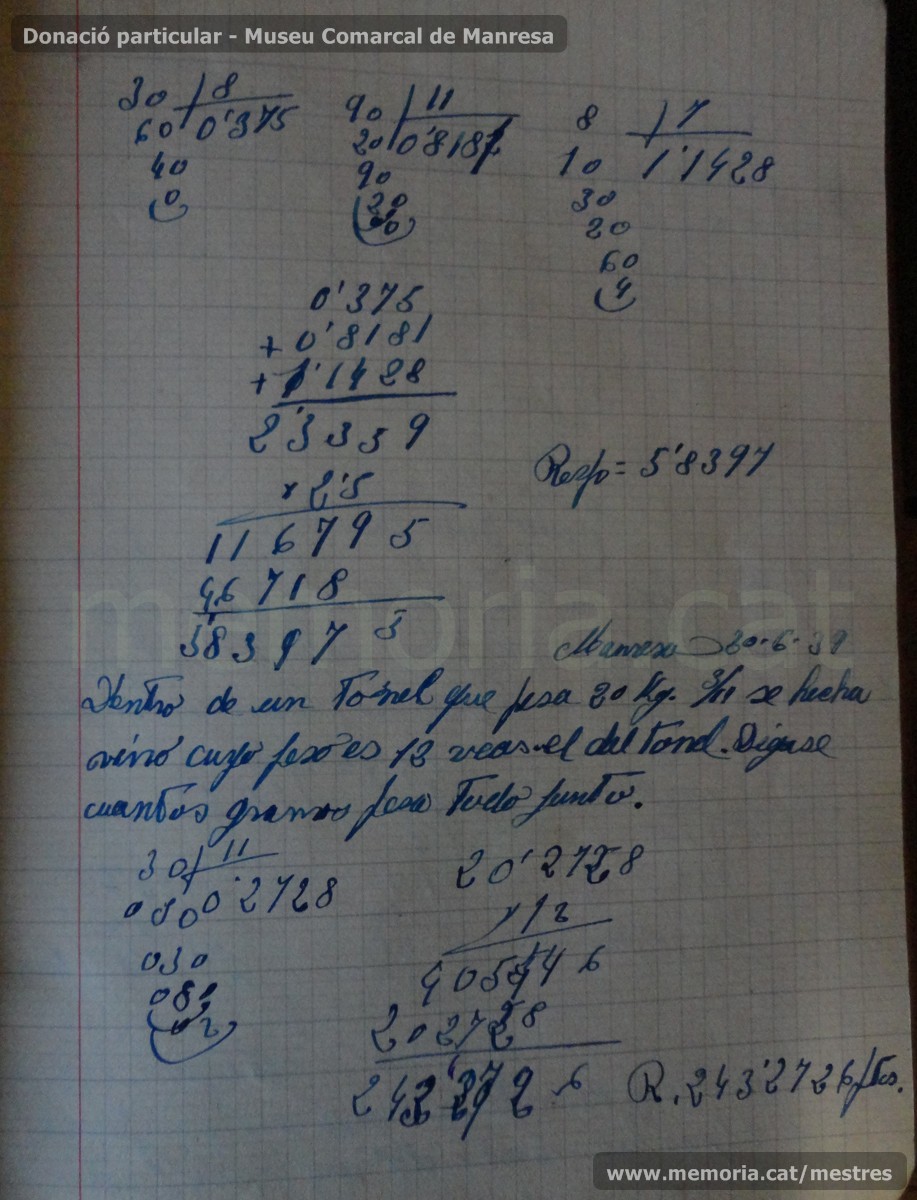 Donació particular - Museu Comarcal de Manresa
30 | 8
60 0'375
40
0
90 | 11
20 0'8181
90
20
8 | 7
10 1'1428
30
20
60
4
0'375
+ 0'8181
+ 1'1428
2'3359
x 2'5
116795
46718
583975
Resp = 5'8397
memoria.cat
Manresa 20-6-39
Dentro de un tonel que pesa 20 Kg. 3/11 se hecha
vino cuyo peso es 12 veces el del tonel. Digase
cuantos gramos pesa todo junto.
30 | 11
080 0'2728
030
080
02
20'2728
x 12
405446
202728
243'2726
R. 243'2726 ptas.
www.memoria.cat/mestres